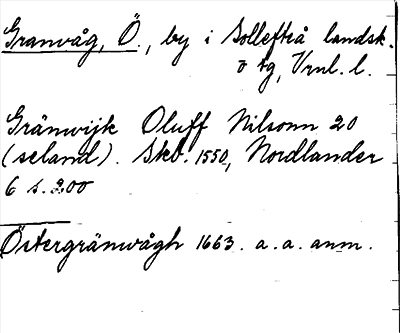 Granvåg, Ö., by i Sollefteå landsk.
o tg, Vrnl. l.
Gränwijk Oluff Nilsonn 20
(seland). Skb. 1550, Nordlander
6 s. 200
Östergränwågh 1663. a. a. anm.